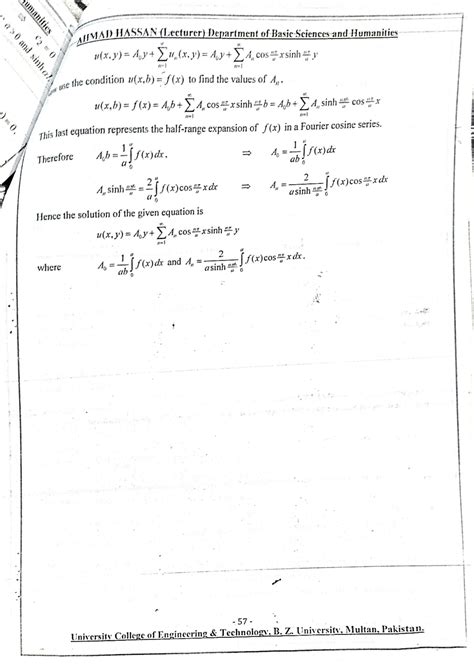 umanities
⇒ c₂ = 0
a > 0 and sinh
) = 0.
AHMAD HASSAN (Lecturer) Department of Basic Sciences and Humanities
u(x, y) = A₀y + ∑_{n=1}^{∞} uₙ(x, y) = A₀y + ∑_{n=1}^{∞} Aₙ cos (nπ/a) x sinh (nπ/a) y
use the condition u(x,b) = f(x) to find the values of Aₙ.
u(x,b) = f(x) = A₀b + ∑_{n=1}^{∞} Aₙ cos (nπ/a) x sinh (nπ/a) b = A₀b + ∑_{n=1}^{∞} Aₙ sinh (nπb/a) cos (nπ/a) x
This last equation represents the half-range expansion of f(x) in a Fourier cosine series.
Therefore A₀b = (1/a) ∫₀ᵃ f(x) dx. ⇒ A₀ = (1/ab) ∫₀ᵃ f(x) dx
Aₙ sinh (nπb/a) = (2/a) ∫₀ᵃ f(x) cos (nπ/a) x dx ⇒ Aₙ = (2/(a sinh (nπb/a))) ∫₀ᵃ f(x) cos (nπ/a) x dx
Hence the solution of the given equation is
u(x, y) = A₀y + ∑_{n=1}^{∞} Aₙ cos (nπ/a) x sinh (nπ/a) y
where A₀ = (1/ab) ∫₀ᵃ f(x) dx and Aₙ = (2/(a sinh (nπb/a))) ∫₀ᵃ f(x) cos (nπ/a) x dx.
- 57 -
University College of Engineering & Technology, B. Z. University, Multan, Pakistan.